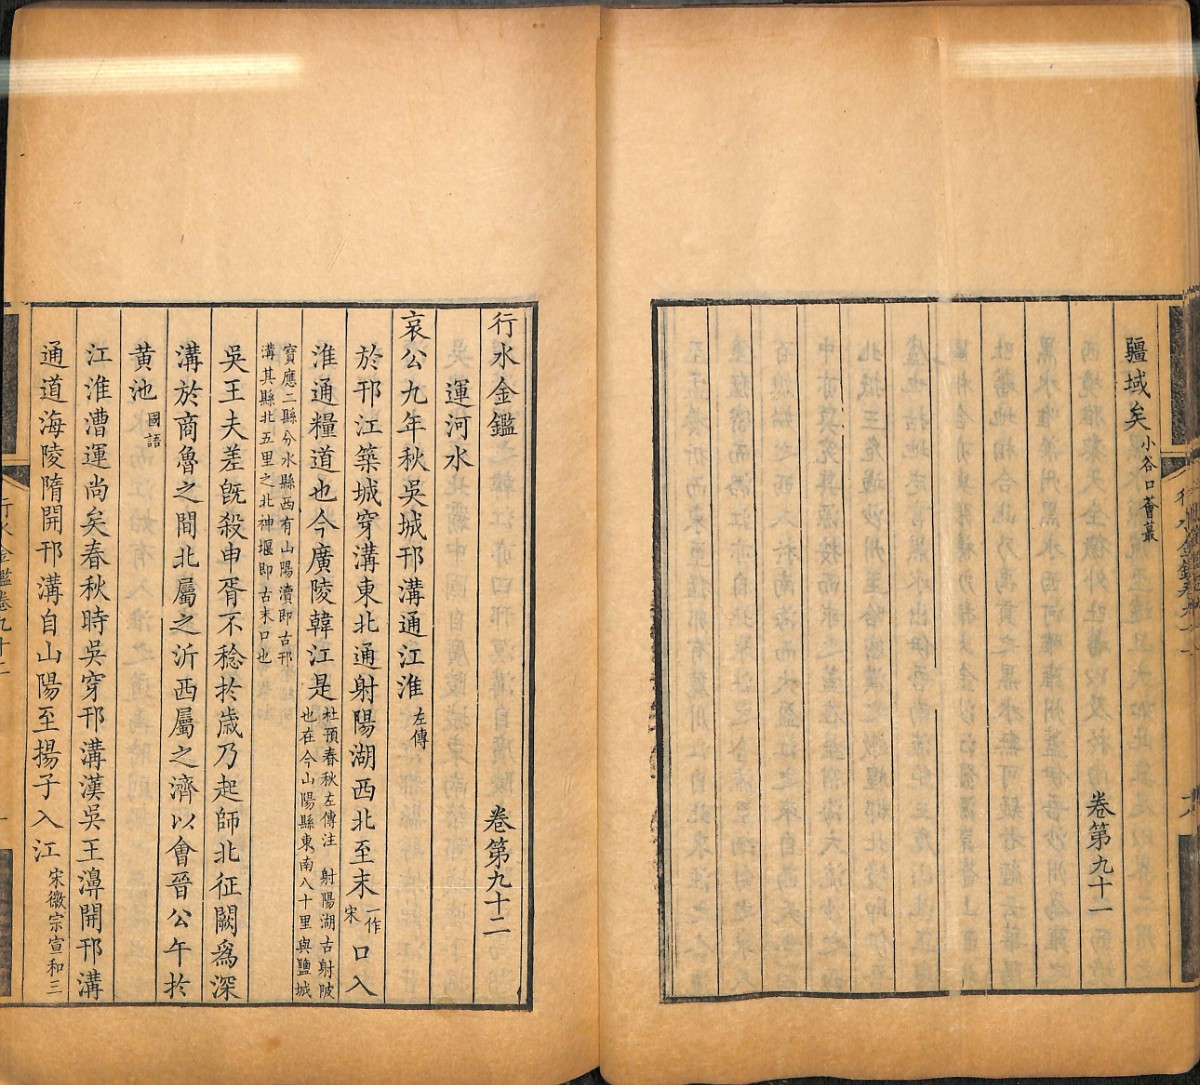 疆域矣小谷口薈蕞
卷第九十一
行水金鑑 卷第九十二
運河水
哀公九年秋吳城邗溝通江淮左傳
於邗江築城穿溝東北通射陽湖西北至末一作宋口入
淮通糧道也今廣陵韓江是杜預春秋左傳注 射陽湖古射陂
也在今山陽縣東南八十里與鹽城
寶應二縣分水縣西有山陽瀆即古邗
溝其縣北五里之北神堰即古末口也
吳王夫差旣殺申胥不稔於歲乃起師北征闕爲深
溝於商魯之間北屬之沂西屬之濟以會晉公午於
黄池國語
江淮漕運尚矣春秋時吳穿邗溝漢吳王濞開邗溝
通道海陵隋開邗溝自山陽至揚子入江宋徽宗宣和三
行水金鑑卷九十二
一